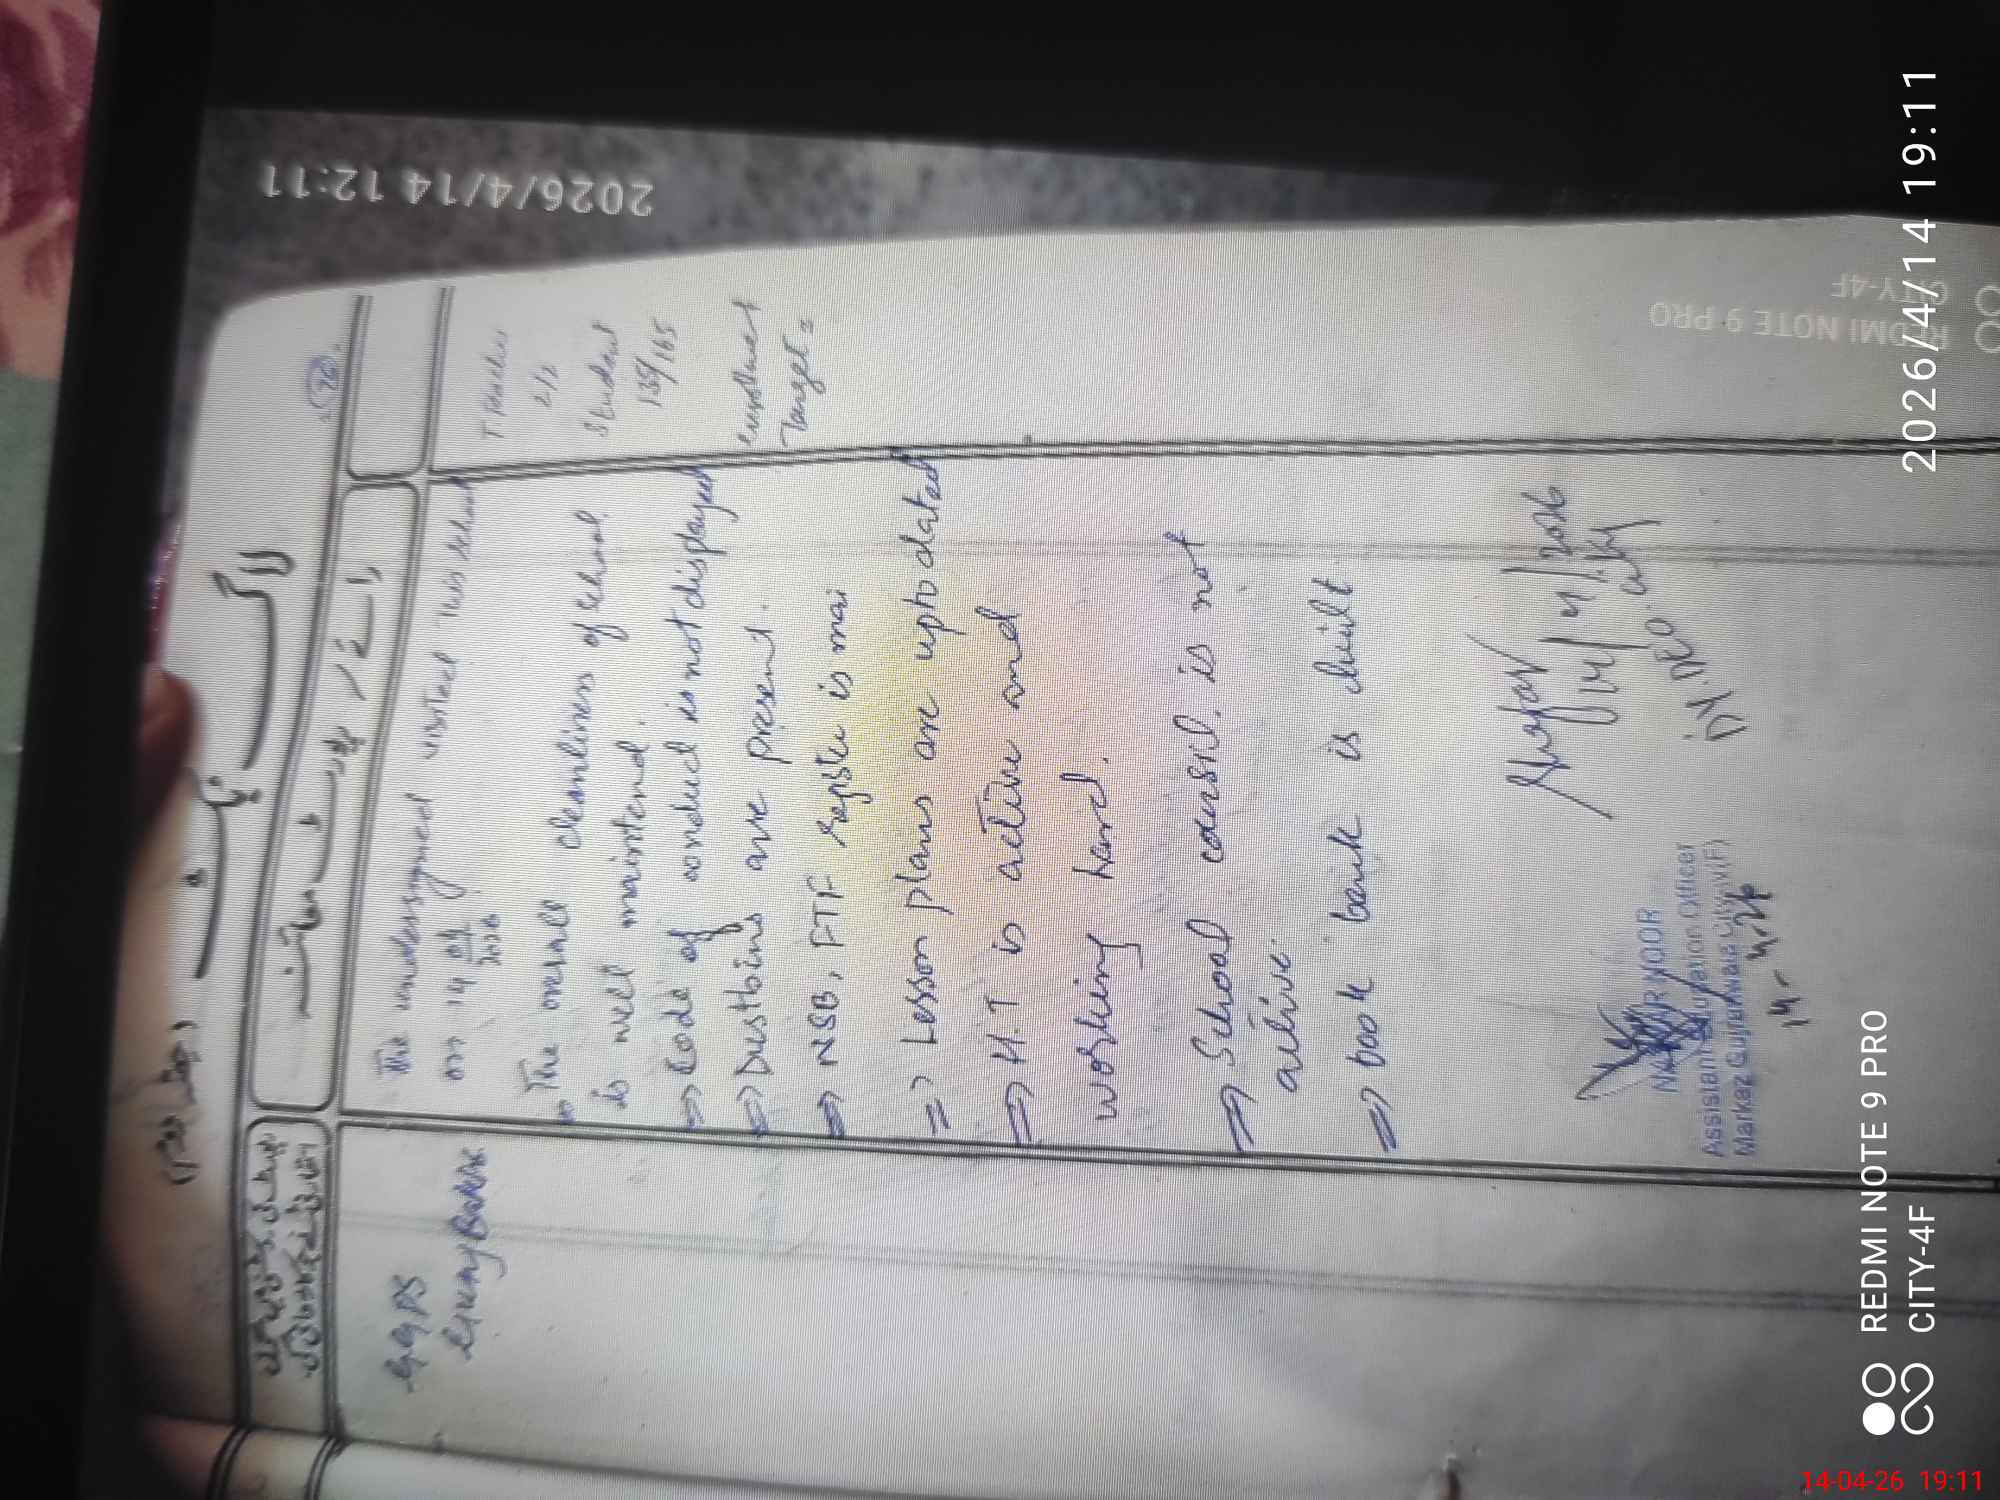 لاگ بک
رائے / پڑتال معائنہ
GGPS
The undersigned visited this school
on 14 04
2026
⇒ The overall cleanliness of school
is well maintend.
⇒ Code of conduct is not displayed
⇒ Dustbins are present.
⇒ NSB, FTF register is mai
⇒ Lesson plans are uptodated
⇒ H.T is active and
working hard.
⇒ School counsil. is not
active.
⇒ book bank is built.
Student
139/165
Target =
14/4/2026
Dy. DEO.
NOOR
Assistant Education Officer
Markaz Gujranwala
14-4-26
2026/4/14 12:11
REDMI NOTE 9 PRO
CITY-4F
2026/4/14 19:11
REDMI NOTE 9 PRO
CITY-4F
14-04-26 19:11